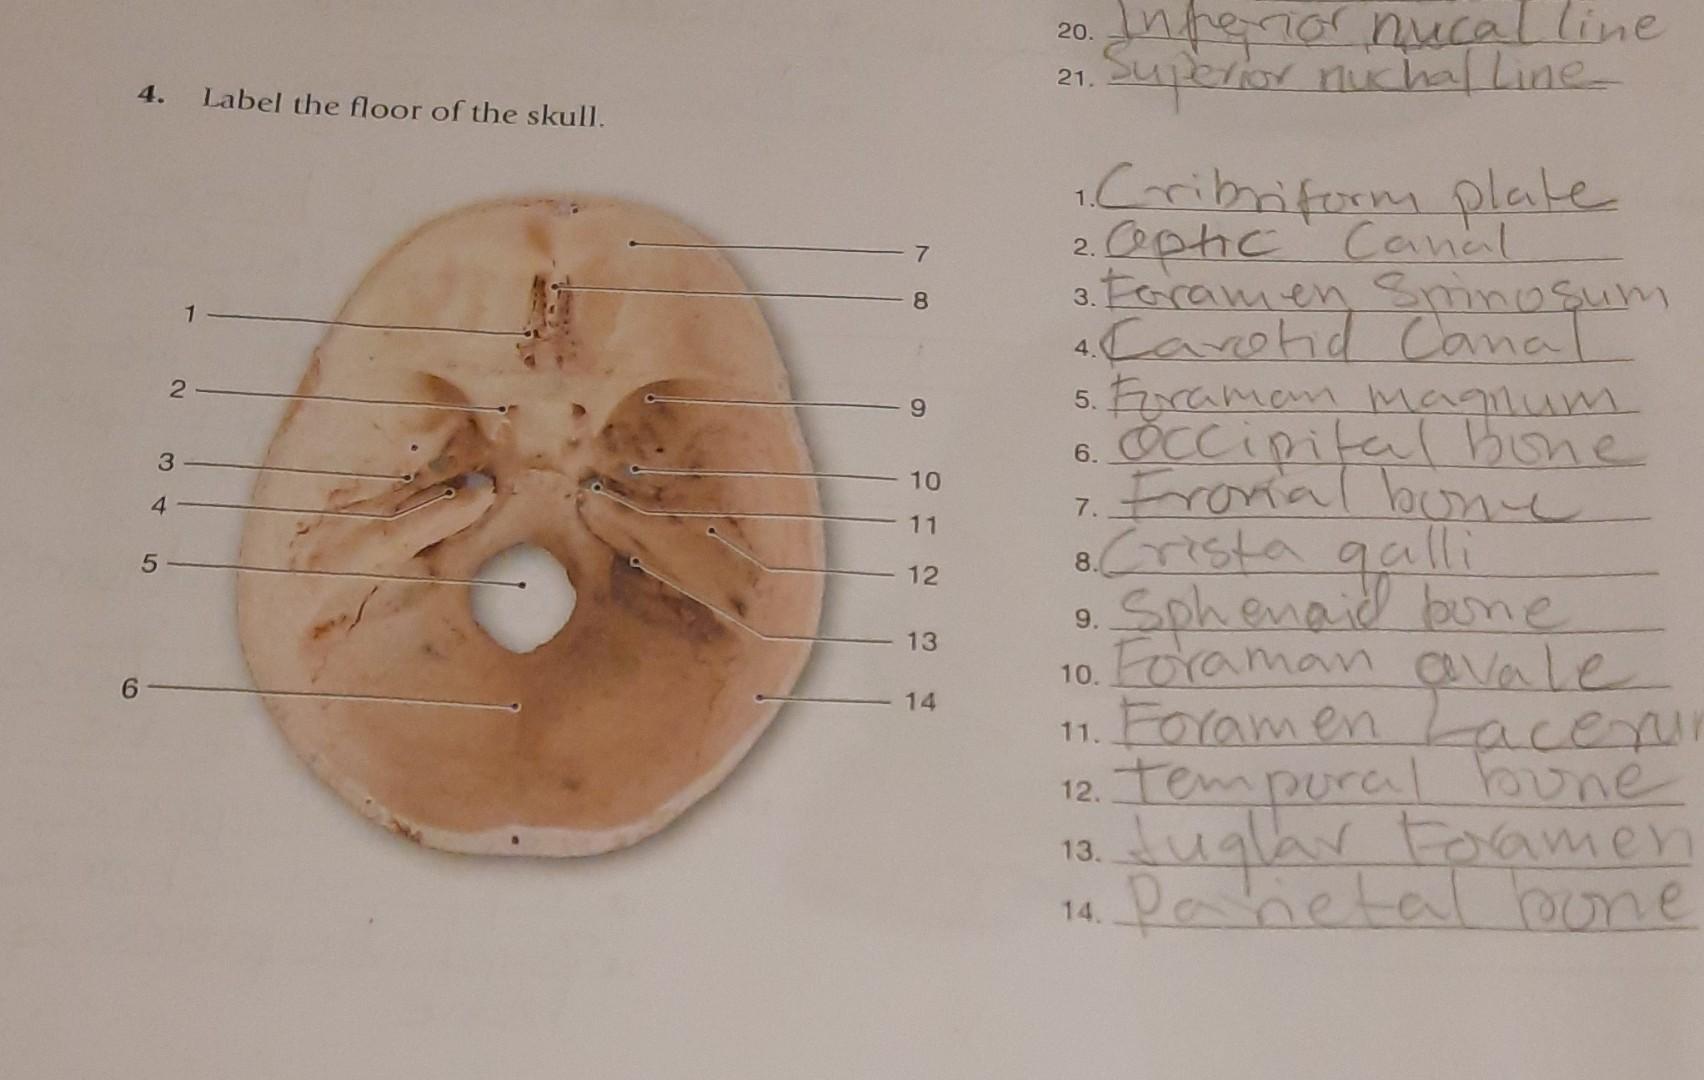 20. Inferior nucal line
21. Superior nuchal Line
4. Label the floor of the skull.
1. Cribriform plate
2. Optic Canal
3. Foramen Spinosum
4. Carotid Canal
5. Foraman magnum
6. Occipital bone
7. Frontal bone
8. Crista galli
9. Sphenoid bone
10. Foraman ovale
11. Foramen Lacerum
12. temporal bone
13. Juglar Foramen
14. Parietal bone
7
8
1
2
9
3
10
4
11
5
12
13
6
14